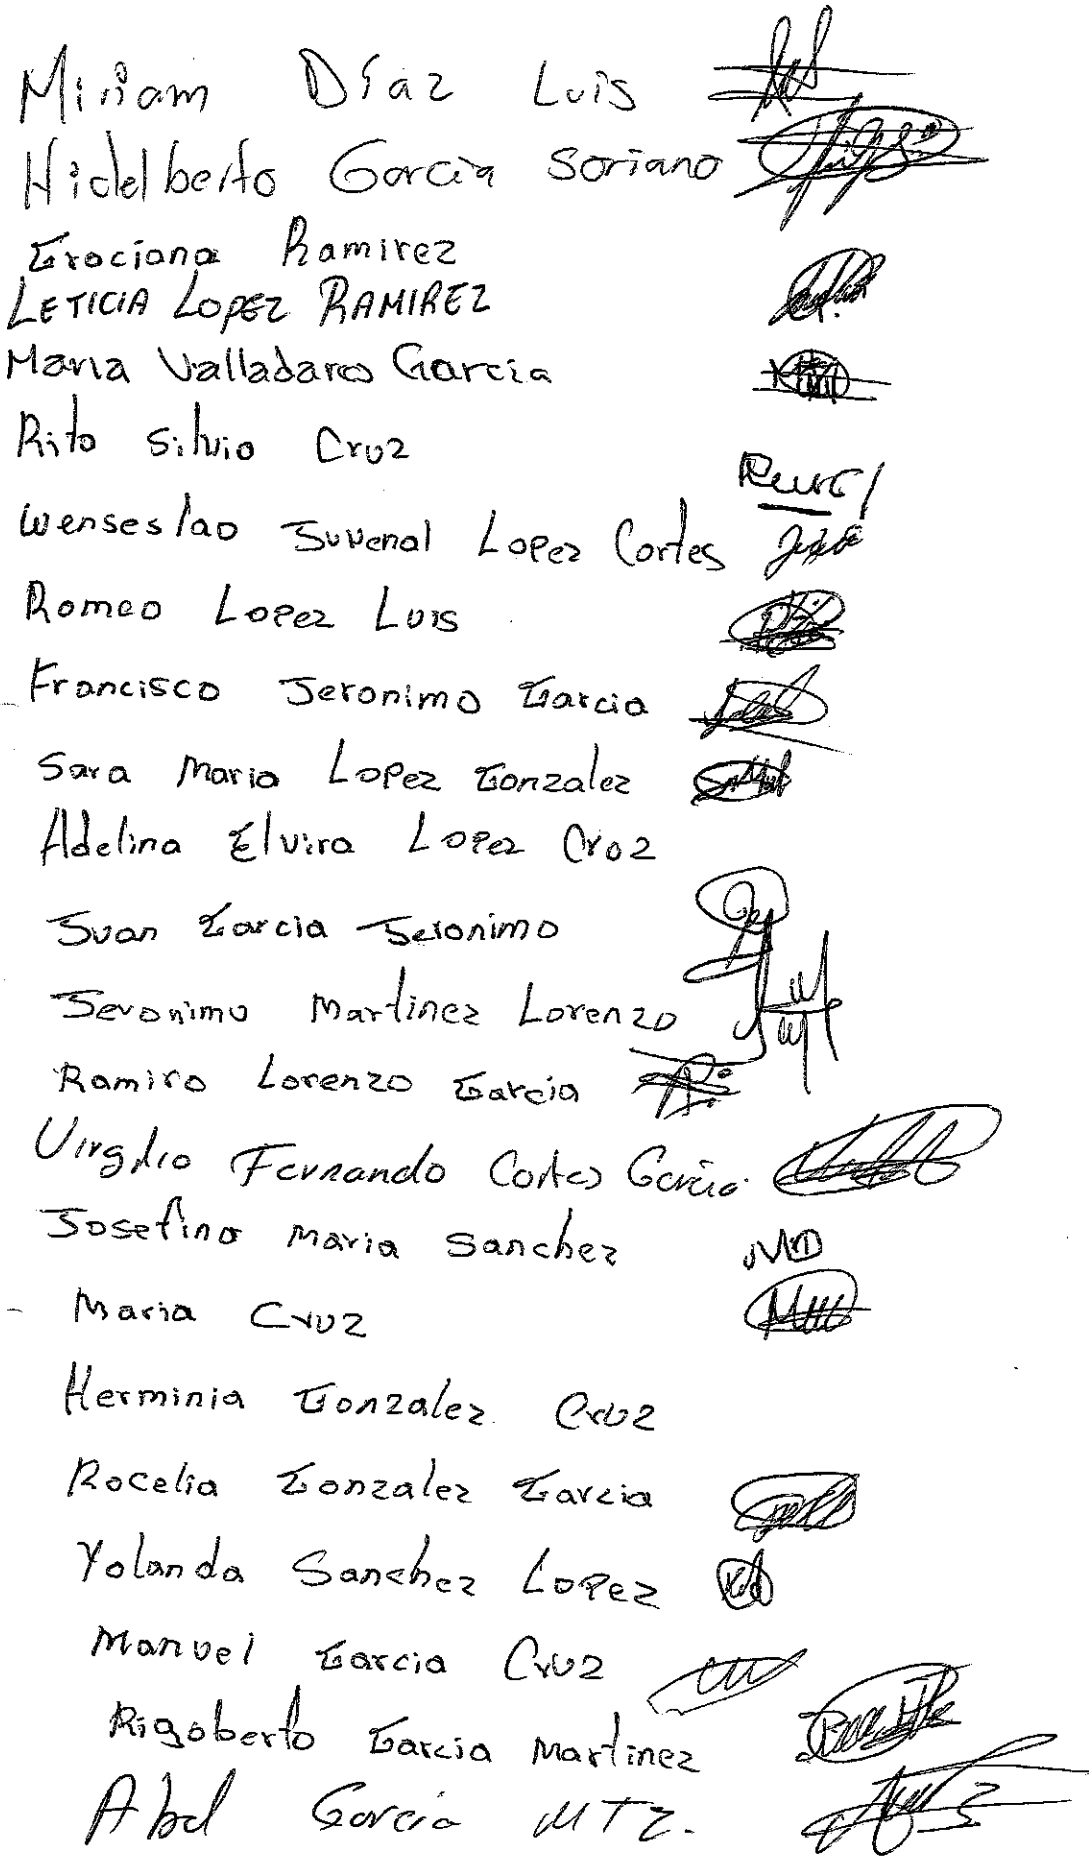 Miriam Díaz Luis
Hidelberto García Soriano
Graciana Ramirez
LETICIA LOPEZ RAMIREZ
Maria Valladares Garcia
Rito Silvio Cruz
Wenseslao Juvenal Lopez Cortes
Romeo Lopez Luis
Francisco Jeronimo Garcia
Sara Maria Lopez Gonzalez
Adelina Elvira Lopez Cruz
Juan Garcia Jeronimo
Jeronimo Martinez Lorenzo
Ramiro Lorenzo Garcia
Virgilio Fernando Cortes Garcia
Josefina Maria Sanchez MD
Maria Cruz
Herminia Gonzalez Cruz
Rocelia Gonzalez Garcia
Yolanda Sanchez Lopez
Manuel Garcia Cruz
Rigoberto Garcia Martinez
Abel Garcia MTZ.